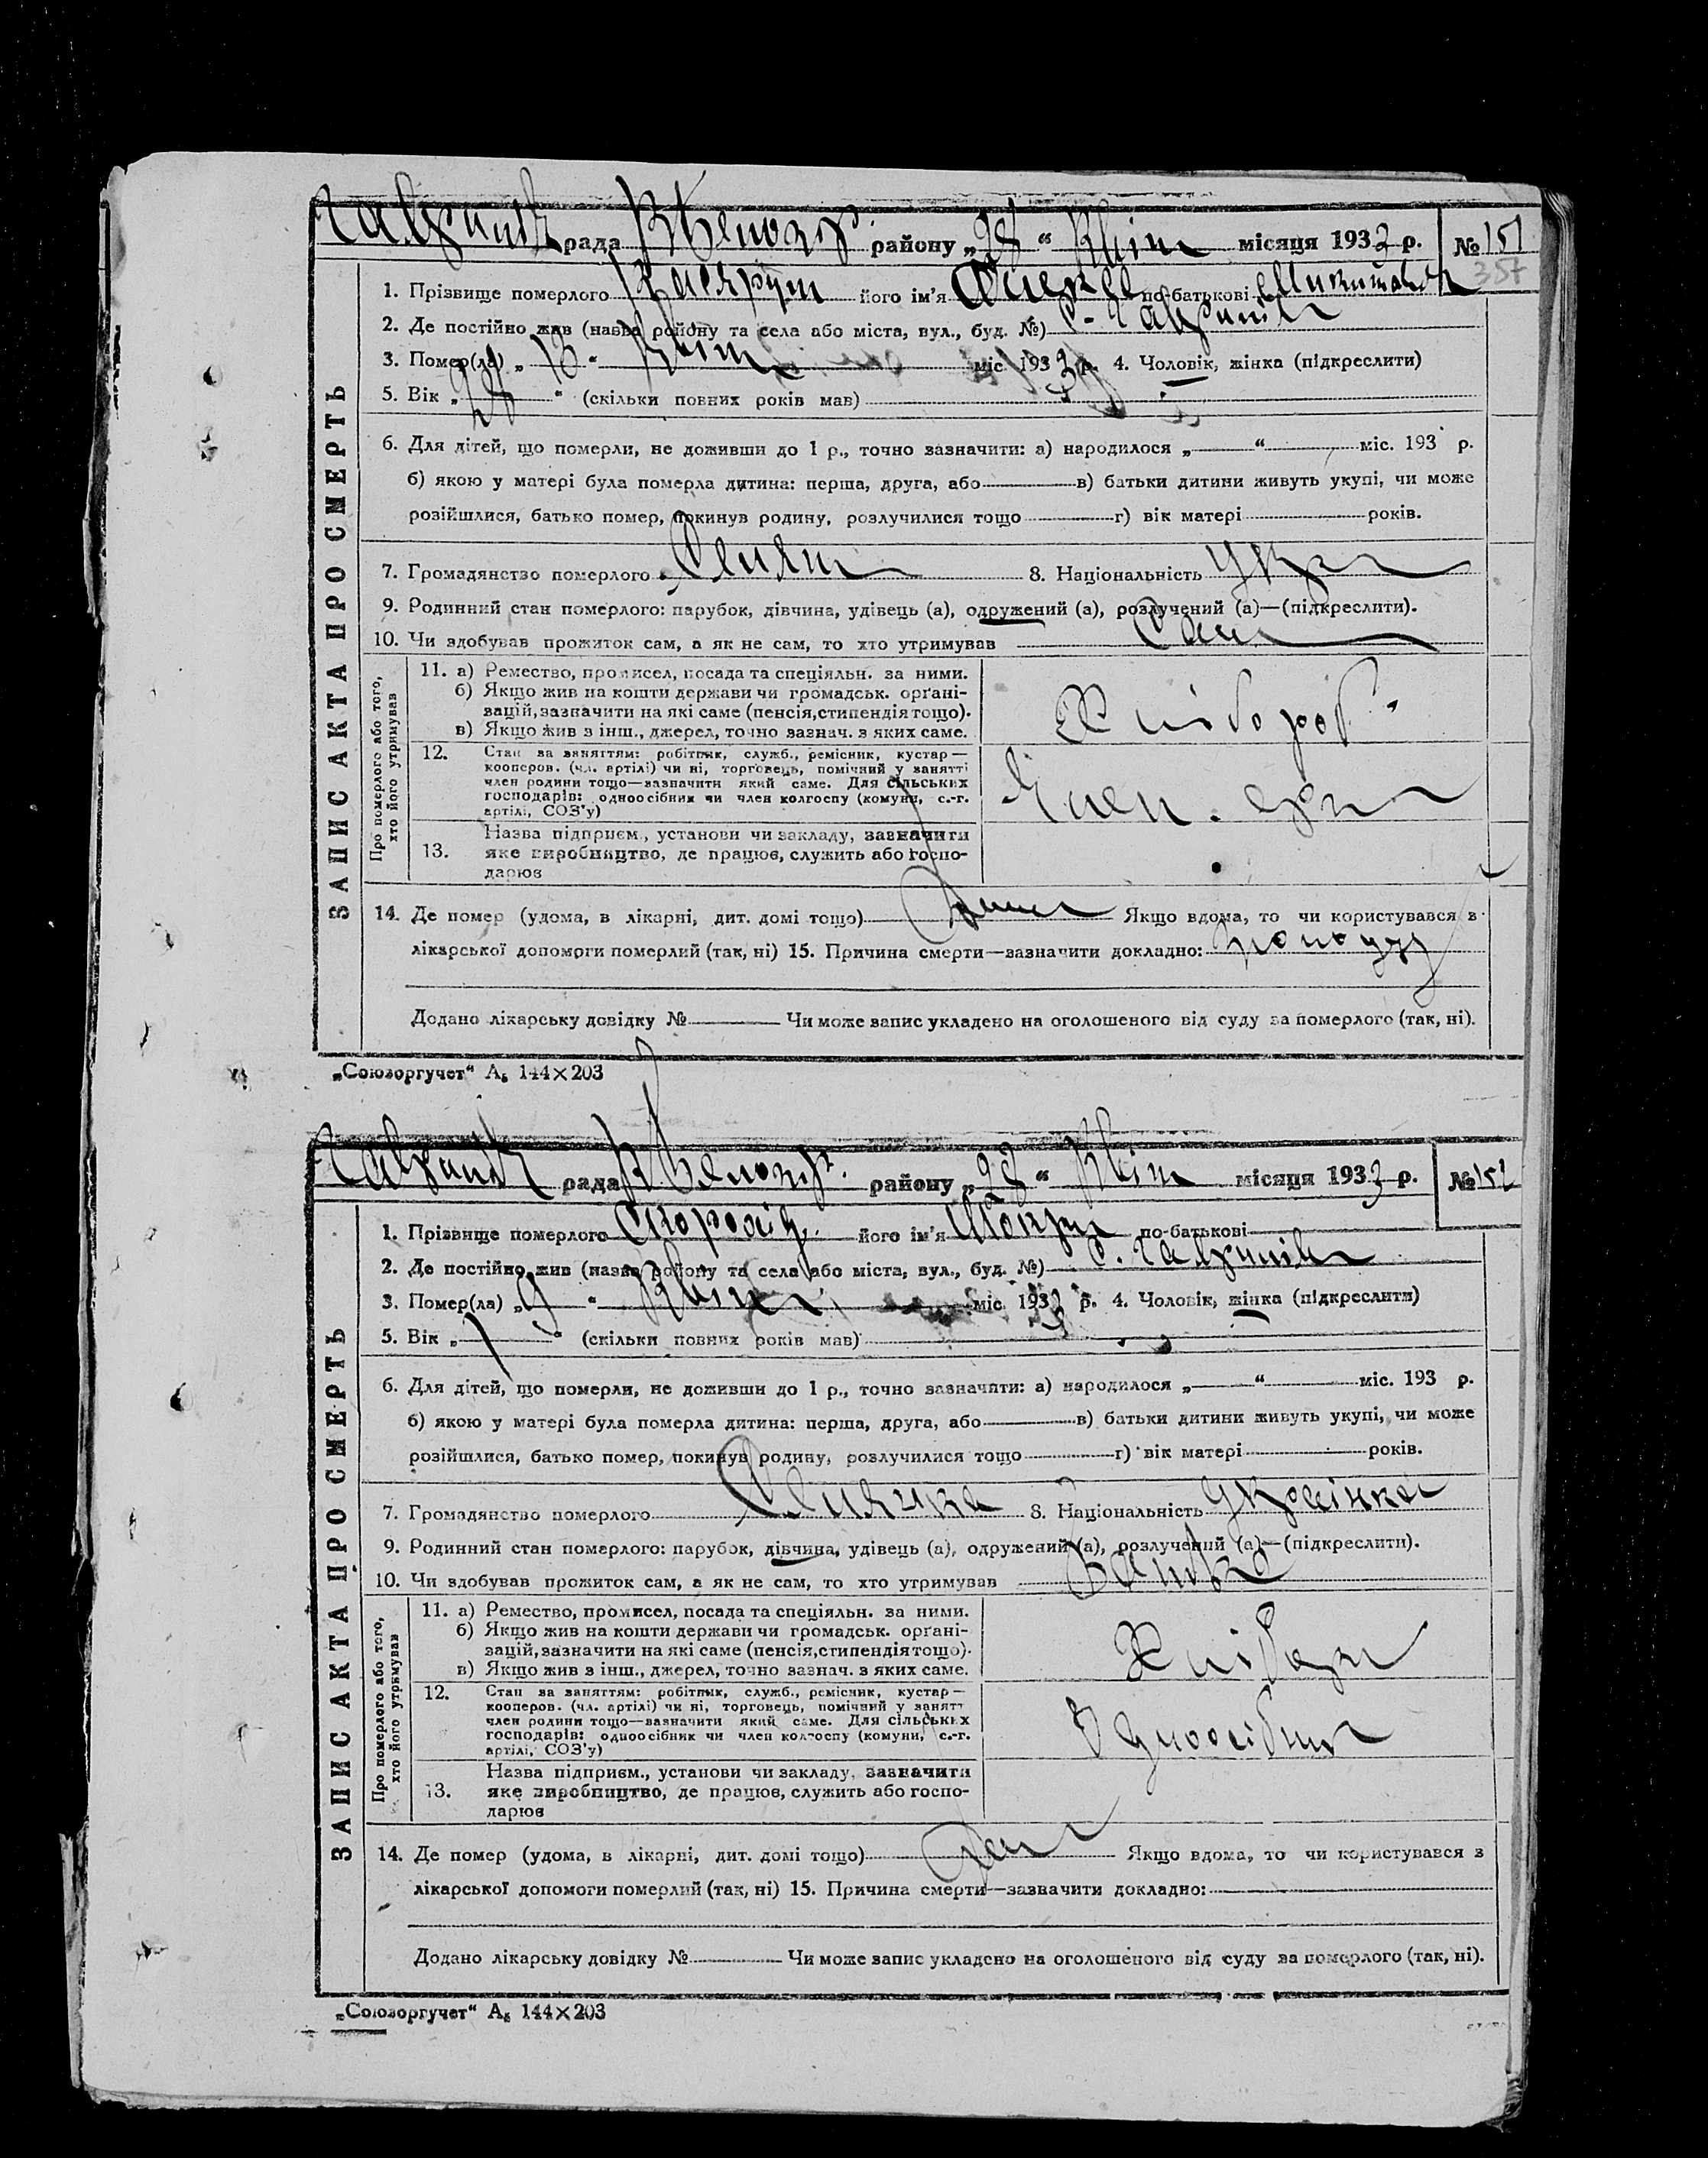 рада району „28“ Квіт місяця 1933 р. № 151
357
1. Прізвище померлого його ім'я по-батькові Микитович
2. Де постійно жив (назва району та села або міста, вул., буд. №) с. Гаврилівк
3. Помер(ла) „13“ Квіт міс. 1933 р. 4. Чоловік, жінка (підкреслити)
5. Вік „28“ (скільки повних років мав)
6. Для дітей, що померли, не доживши до 1 р., точно зазначити: а) народилося „ “ міс. 193 р.
б) якою у матері була померла дитина: перша, друга, або в) батьки дитини живуть укупі, чи може
розійшлися, батько помер, покинув родину, розлучилися тощо г) вік матері років.
7. Громадянство померлого Селян 8. Національність Укра
9. Родинний стан померлого: парубок, дівчина, удівець (а), одружений (а), розлучений (а)—(підкреслити).
10. Чи здобував прожиток сам, а як не сам, то хто утримував Сам
ЗАПИС АКТА ПРО СМЕРТЬ
Про померлого або того, хто його утримував
11. а) Ремество, промисел, посада та спеціяльн. за ними.
б) Якщо жив на кошти держави чи громадськ. орґані-
зацій, зазначити на які саме (пенсія, стипендія тощо).
в) Якщо жив з інш., джерел, точно зазнач. з яких саме.
Хлібороб
12. Стан за заняттям: робітник, служб., ремісник, кустар—
кооперов. (чл. артілі) чи ні, торговець, помічний у занятті
член родини тощо—зазначити який саме. Для сільських
господарів: одноосібник чи член колгоспу (комуни, с.-г.
артілі, СОЗ'у)
Член
13. Назва підприєм., установи чи закладу, зазначити
яке виробництво, де працює, служить або госпо-
дарює
14. Де помер (удома, в лікарні, дит. домі тощо) Дома Якщо вдома, то чи користувався з
лікарської допомоги померлий (так, ні) 15. Причина смерти—зазначити докладно:
Додано лікарську довідку № Чи може запис укладено на оголошеного від суду за померлого (так, ні).
„Союзоргучет“ А₅ 144×203
рада району „28“ Квіт місяця 1933 р. № 152
1. Прізвище померлого його ім'я по-батькові
2. Де постійно жив (назва району та села або міста, вул., буд. №) с. Гаврилівк
3. Помер(ла) „9“ Квіт міс. 1933 р. 4. Чоловік, жінка (підкреслити)
5. Вік „1“ (скільки повних років мав)
6. Для дітей, що померли, не доживши до 1 р., точно зазначити: а) народилося „ “ міс. 193 р.
б) якою у матері була померла дитина: перша, друга, або в) батьки дитини живуть укупі, чи може
розійшлися, батько помер, покинув родину, розлучилися тощо г) вік матері років.
7. Громадянство померлого Селянка 8. Національність Українка
9. Родинний стан померлого: парубок, дівчина, удівець (а), одружений (а), розлучений (а)—(підкреслити).
10. Чи здобував прожиток сам, а як не сам, то хто утримував Батько
ЗАПИС АКТА ПРО СМЕРТЬ
Про померлого або того, хто його утримував
11. а) Ремество, промисел, посада та спеціяльн. за ними.
б) Якщо жив на кошти держави чи громадськ. орґані-
зацій, зазначити на які саме (пенсія, стипендія тощо).
в) Якщо жив з інш., джерел, точно зазнач. з яких саме.
12. Стан за заняттям: робітник, служб., ремісник, кустар—
кооперов. (чл. артілі) чи ні, торговець, помічний у занятт
член родини тощо—зазначити який саме. Для сільських
господарів: одноосібник чи член колгоспу (комуни, с.-г.
артілі, СОЗ'у)
Одноосібник
13. Назва підприєм., установи чи закладу, зазначити
яке виробництво, де працює, служить або госпо-
дарює
14. Де помер (удома, в лікарні, дит. домі тощо) Якщо вдома, то чи користувався з
лікарської допомоги померлий (так, ні) 15. Причина смерти—зазначити докладно:
Додано лікарську довідку № Чи може запис укладено на оголошеного від суду за померлого (так, ні).
„Союзоргучет“ А₅ 144×203